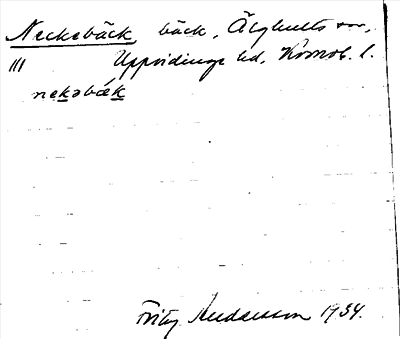 Necksbäck, bäck, Älghults sn,
||| Uppvidinge hd, Kronob. l.
neksbæk
Fritz Andersson 1934.